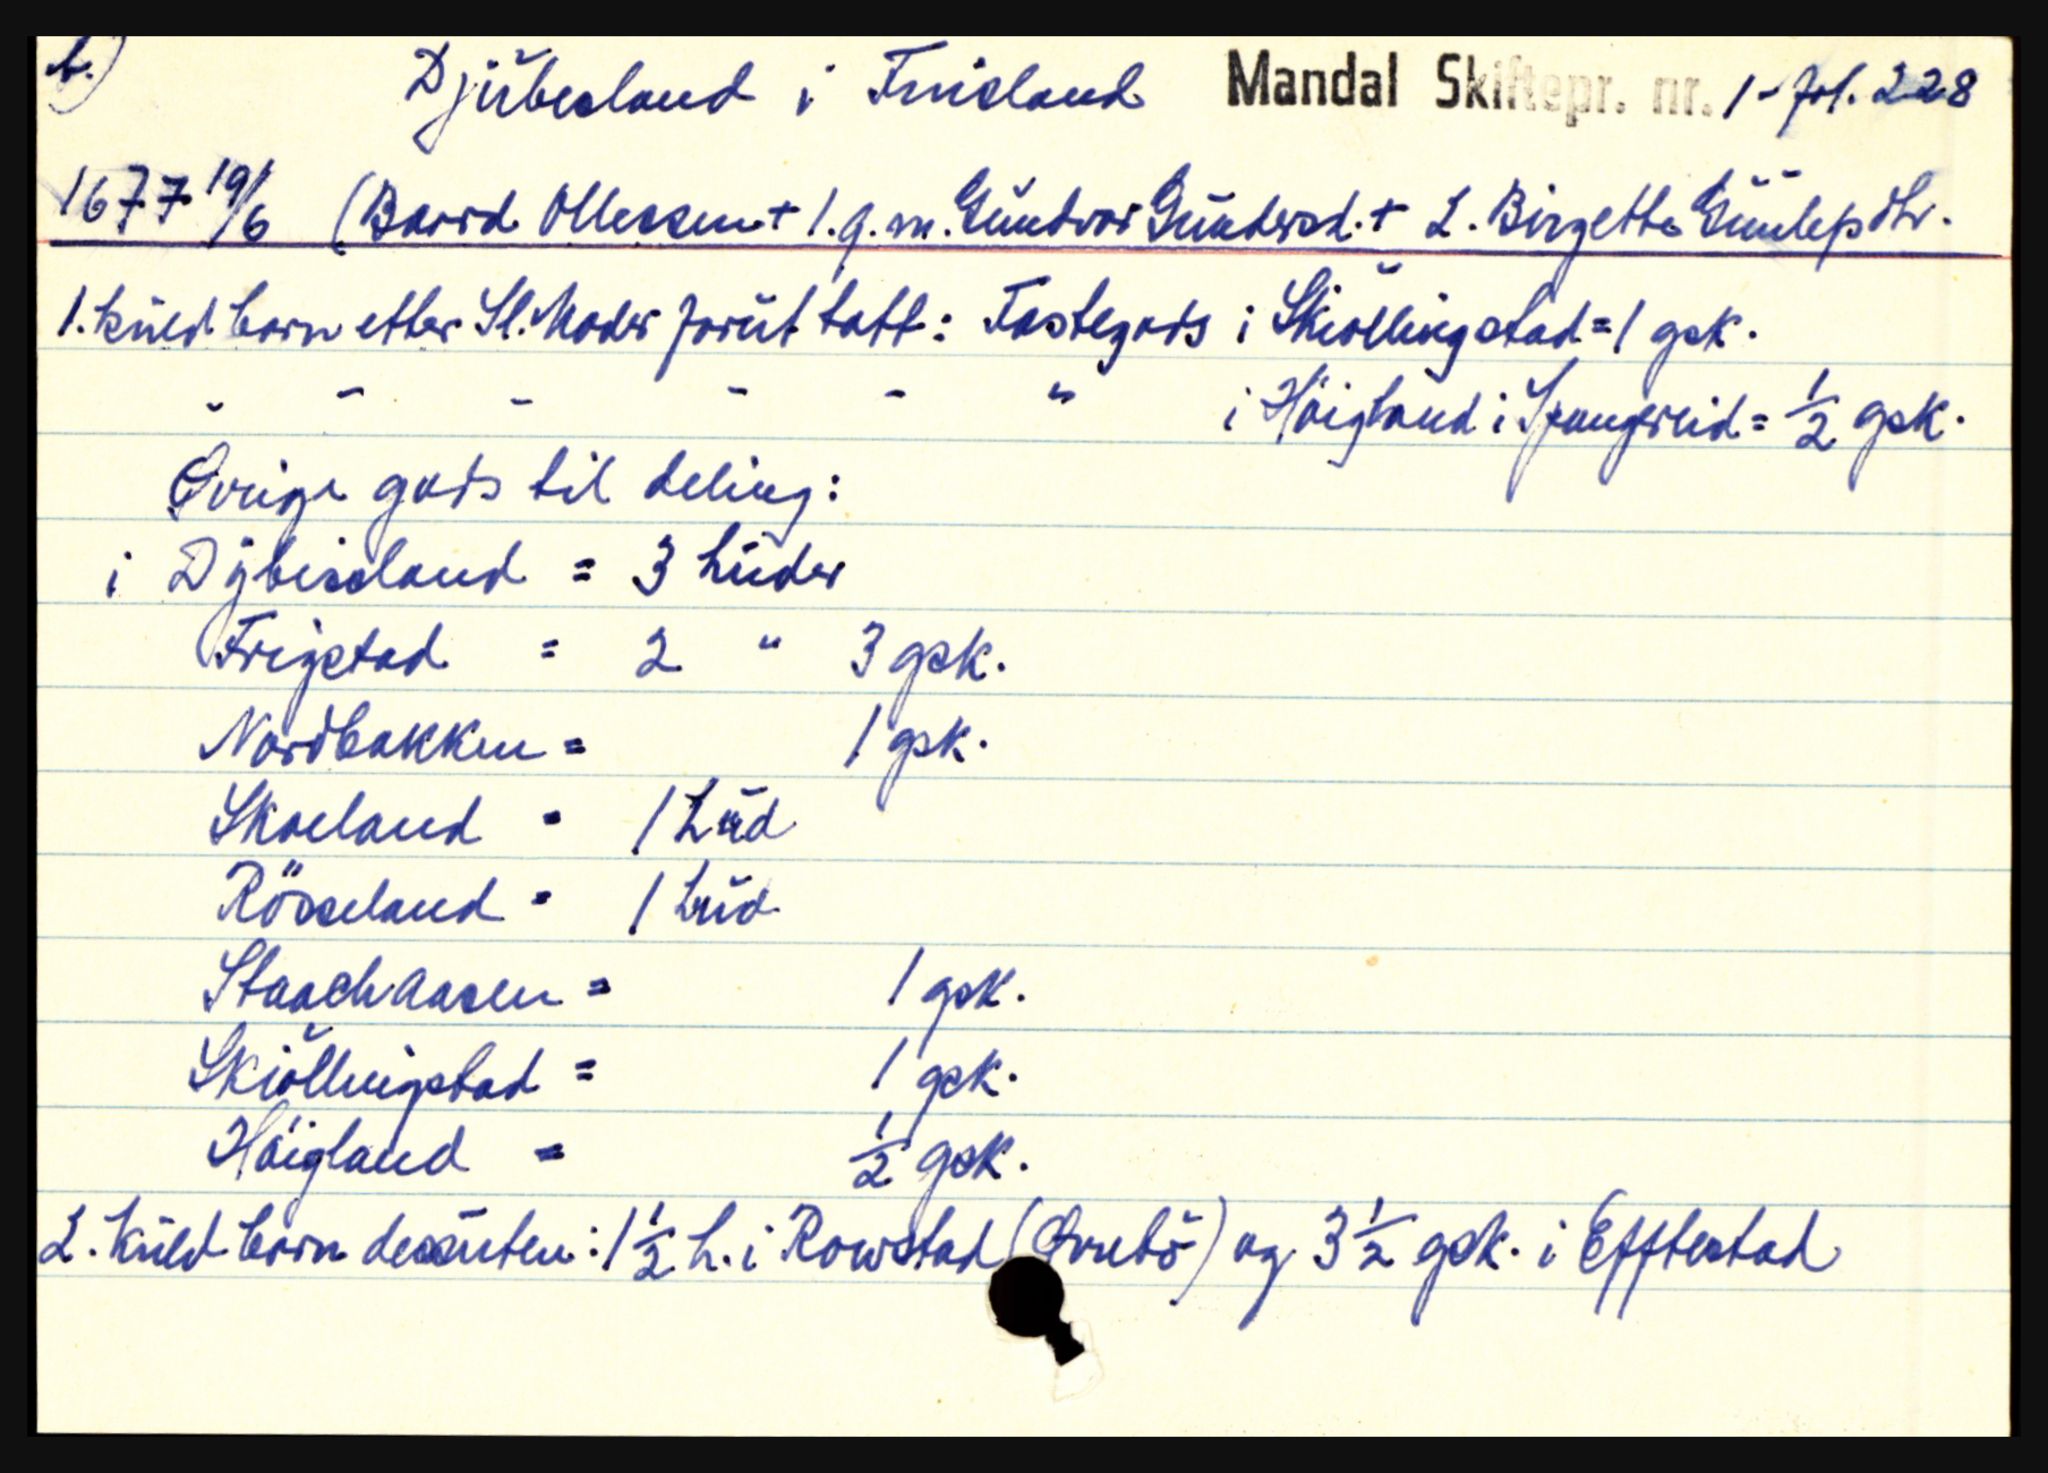 b.) Djŭbesland i Finsland Mandal Skiftepr. nr. 1 - fol. 228
1677 19/6 (Baard Ollessen + 1. g. m. Gŭndvor Gŭndersd. + 2. Birgette Gŭnlepsdtr.
1. kŭld born etter Sl. Moder forŭt tatt: Fastegods i Skiöllingstad = 1 gsk.
- - - - - " i Höigland i Spangereid = 1/2 gsk.
Øvrige gods til deling:
i Dÿbesland = 3 hŭder
Frigstad = 2 " 3 gsk.
Nordbakken = 1 gsk.
Skoeland = 1 hŭd
Rösseland = 1 hŭd
Staachaasen = 1 gsk.
Skiöllingstad = 1 gsk.
Höigland = 1/2 gsk.
2. kŭld born desŭten: 1 1/2 h. i Rowstad (Øvrebö) og 3 1/2 gsk. i Efftestad